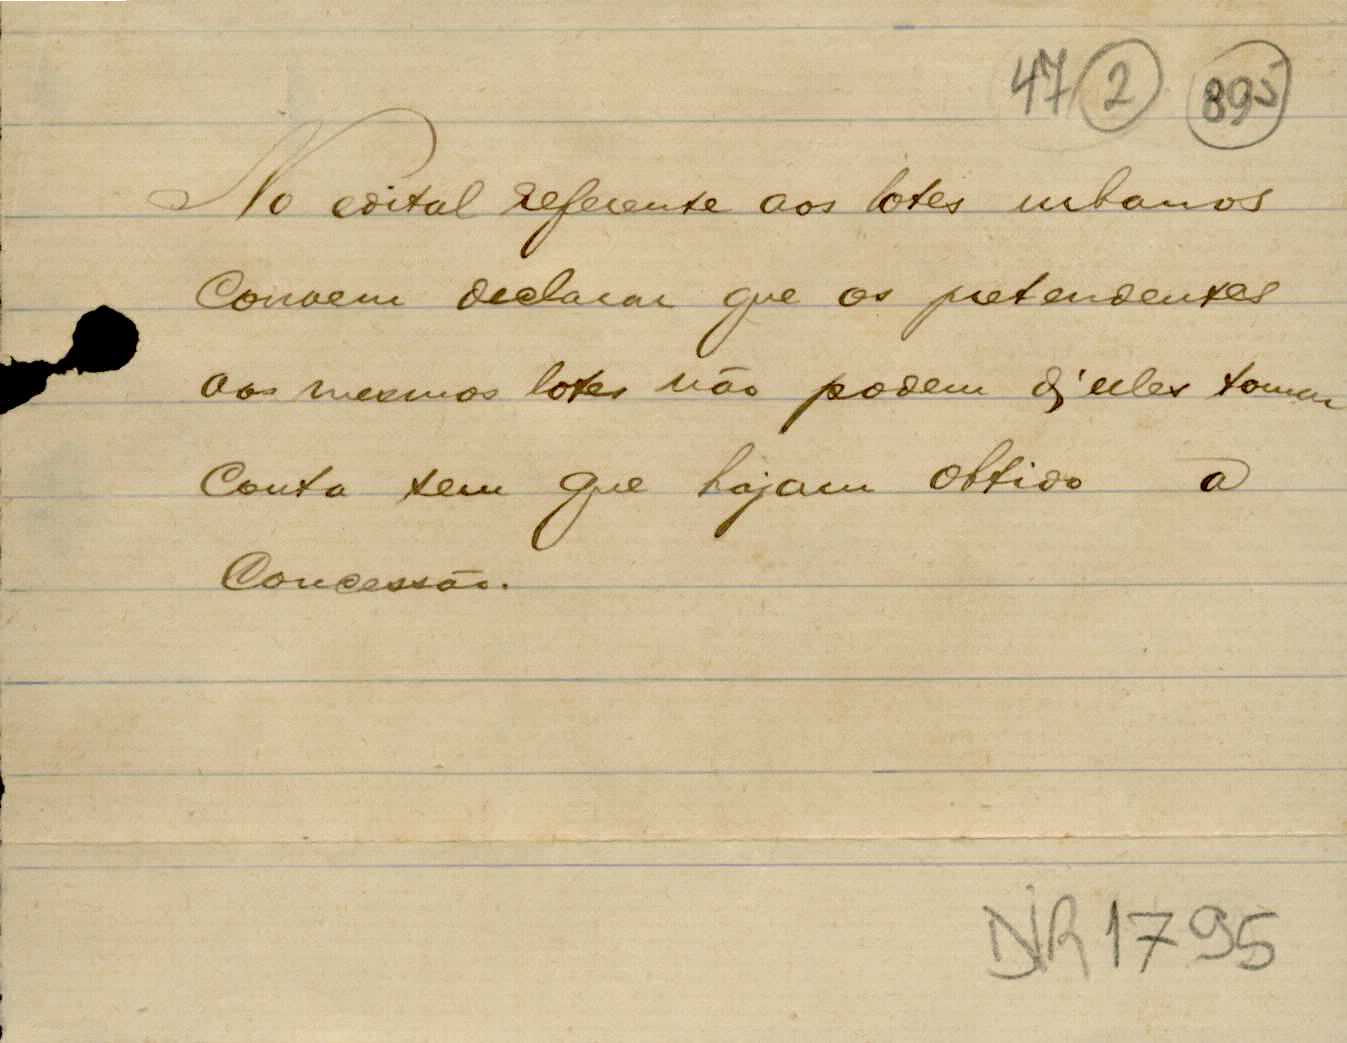 47 2 895
No edital referente aos lotes urbanos
Convem declarar que os pretendentes
aos mesmos lotes não podem d'elles tomar
conta sem que hajam obtido a
Concessão.
DIR 1795